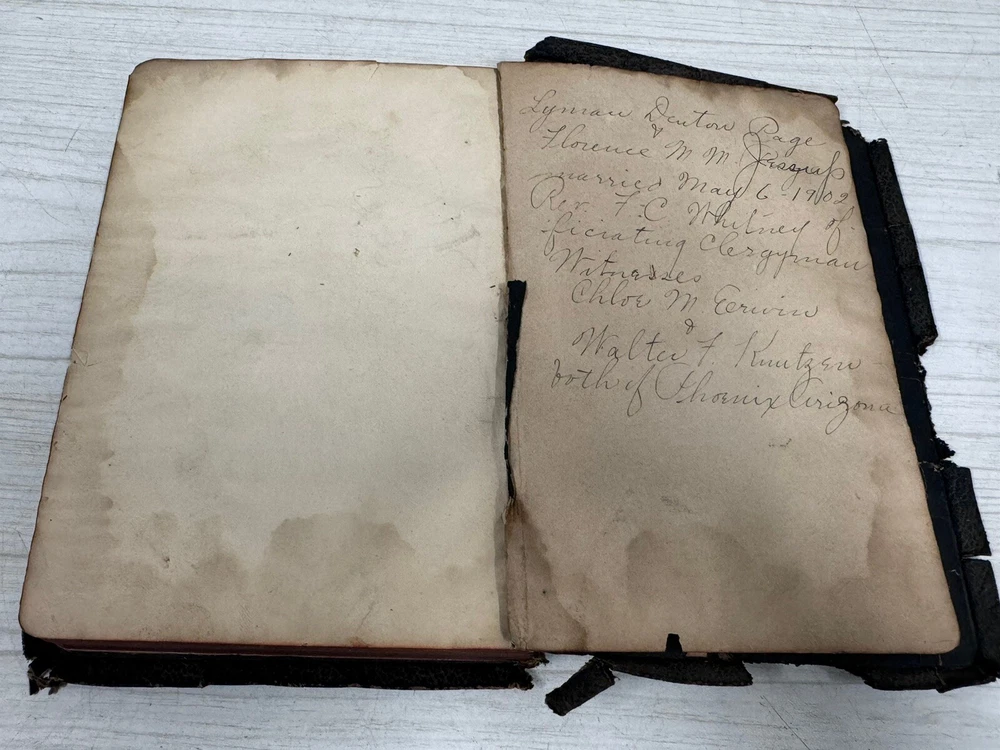 Lyman Denton Page
&
Florence M M Jessup
married May 6-1902
Rev. F. C Whitney of-
ficiating Clergyman
Witnesses
Chloe M Erwin
&
Walter F. Knutzen
both of Phoenix Arizona